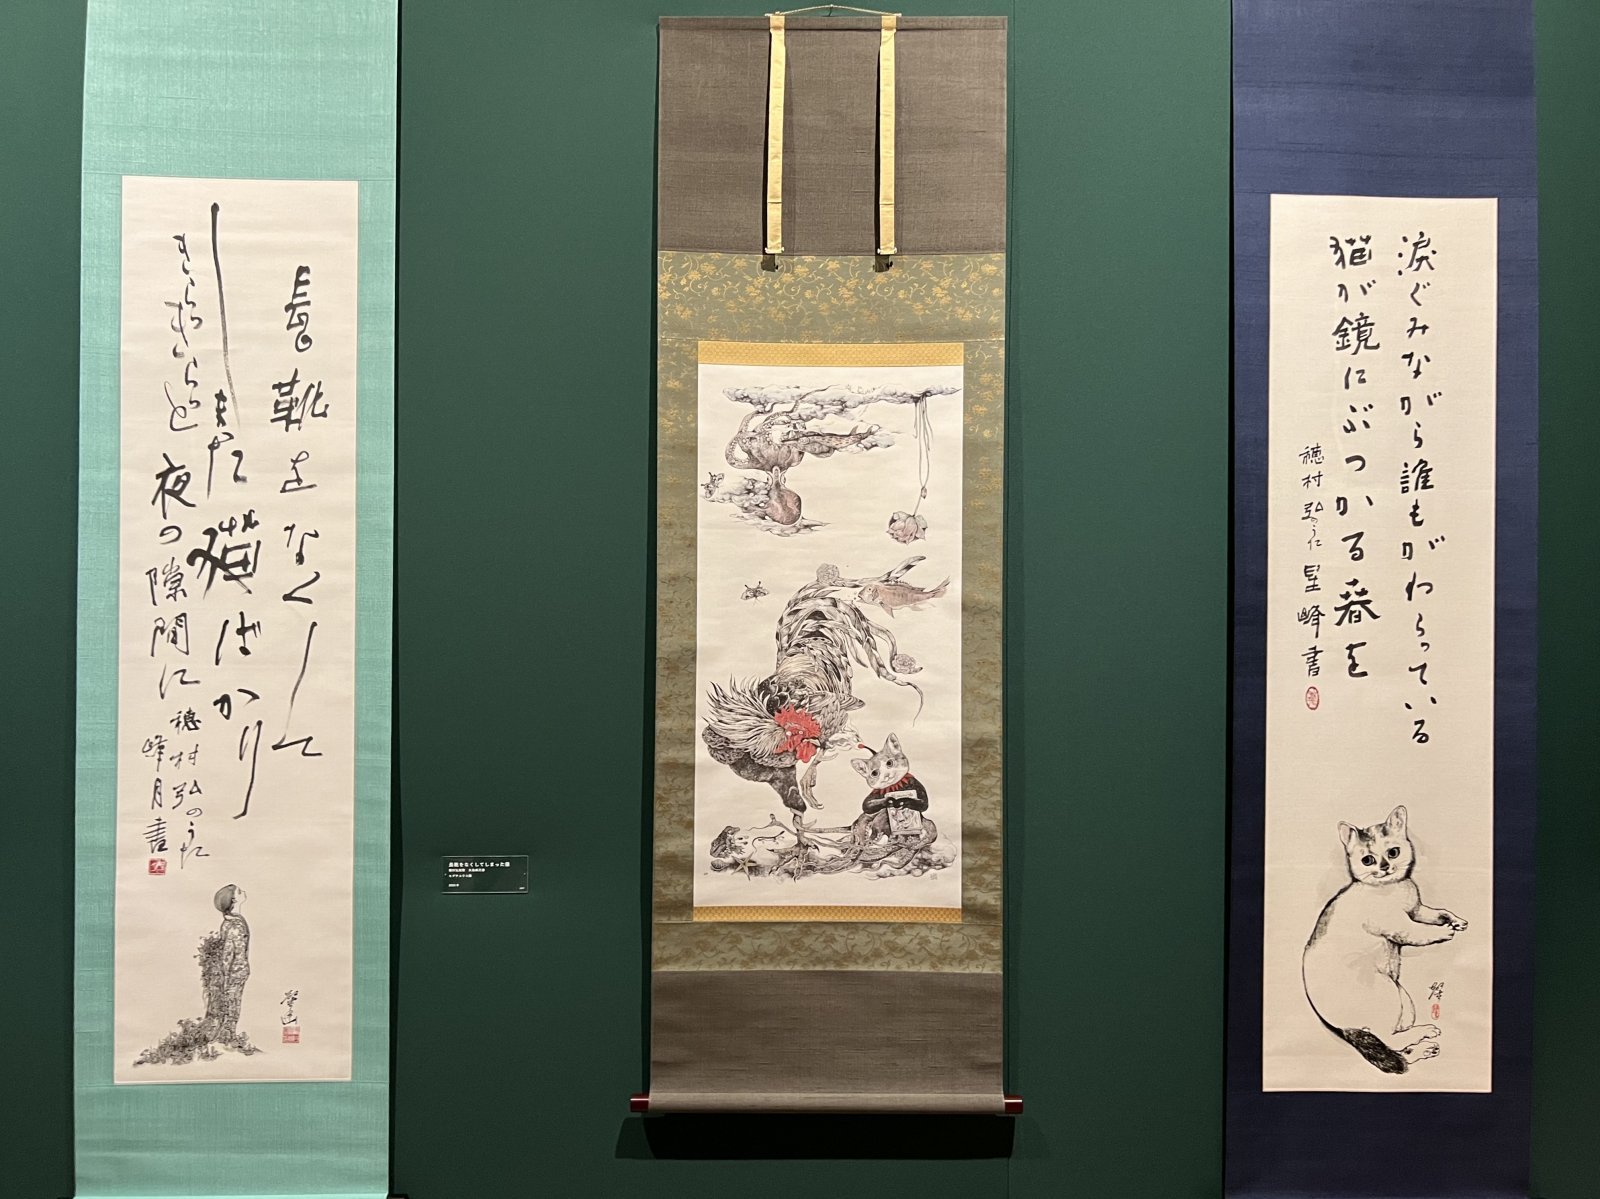 長靴をなくして
しまった猫ばかり
きらきらきらと夜の隙間に
穂村弘のうた
峰月書
長靴をなくしてしまった猫
ヒグチユウコ画
涙ぐみながら誰もがわらっている
猫が鏡にぶつかる春を
穂村弘のうた 星峰書